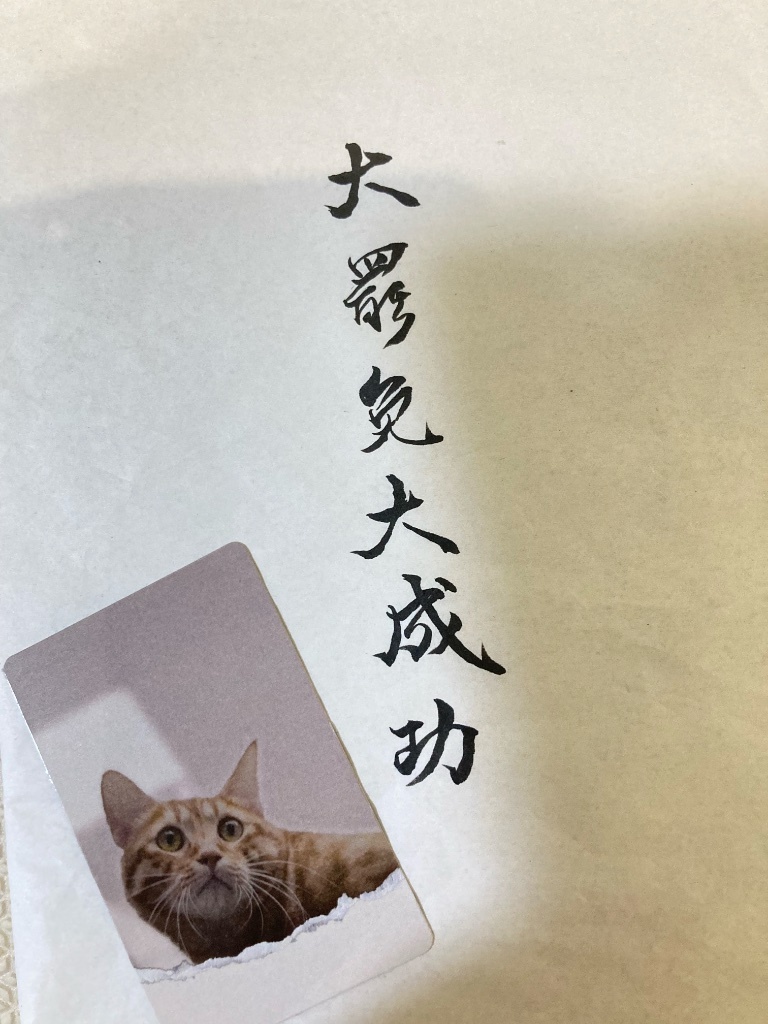 大罷免大成功